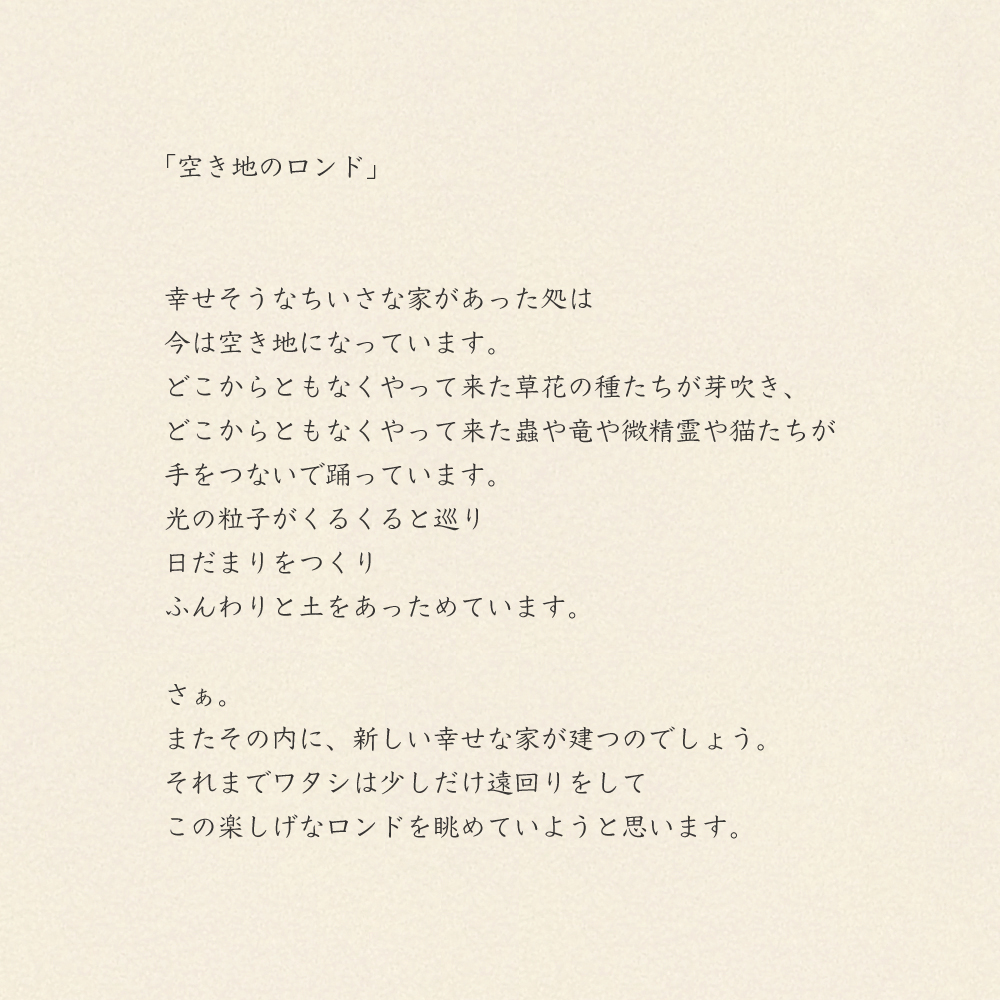 「空き地のロンド」
幸せそうなちいさな家があった処は
今は空き地になっています。
どこからともなくやって来た草花の種たちが芽吹き、
どこからともなくやって来た蟲や竜や微精霊や猫たちが
手をつないで踊っています。
光の粒子がくるくると巡り
日だまりをつくり
ふんわりと土をあっためています。
さぁ。
またその内に、新しい幸せな家が建つのでしょう。
それまでワタシは少しだけ遠回りをして
この楽しげなロンドを眺めていようと思います。